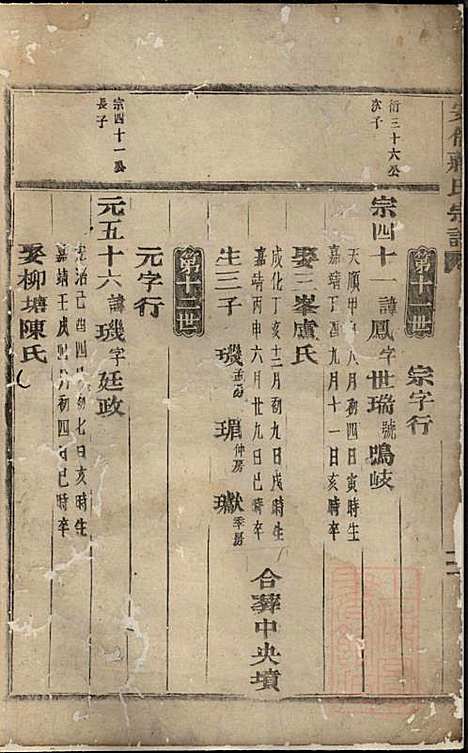 氏宗譜
第十一世
宗字行
衍三十六公
次子
宗四十一諱鳳字世瑞號鳴岐
天順甲申八月初四日寅時生
嘉靖丁酉九月十一日亥時卒
娶三峯盧氏
成化丁亥十二月初九日戌時生
嘉靖丙申六月廿九日巳時卒
合葬中央墳
生三子 璣孟房 琩仲房 瓛季房
第十二世
元字行
宗四十一公
長子
元五十六諱璣字廷政
弘治己酉四月初七日亥時生
嘉靖壬戌四月初四日巳時卒
娶柳塘陳氏